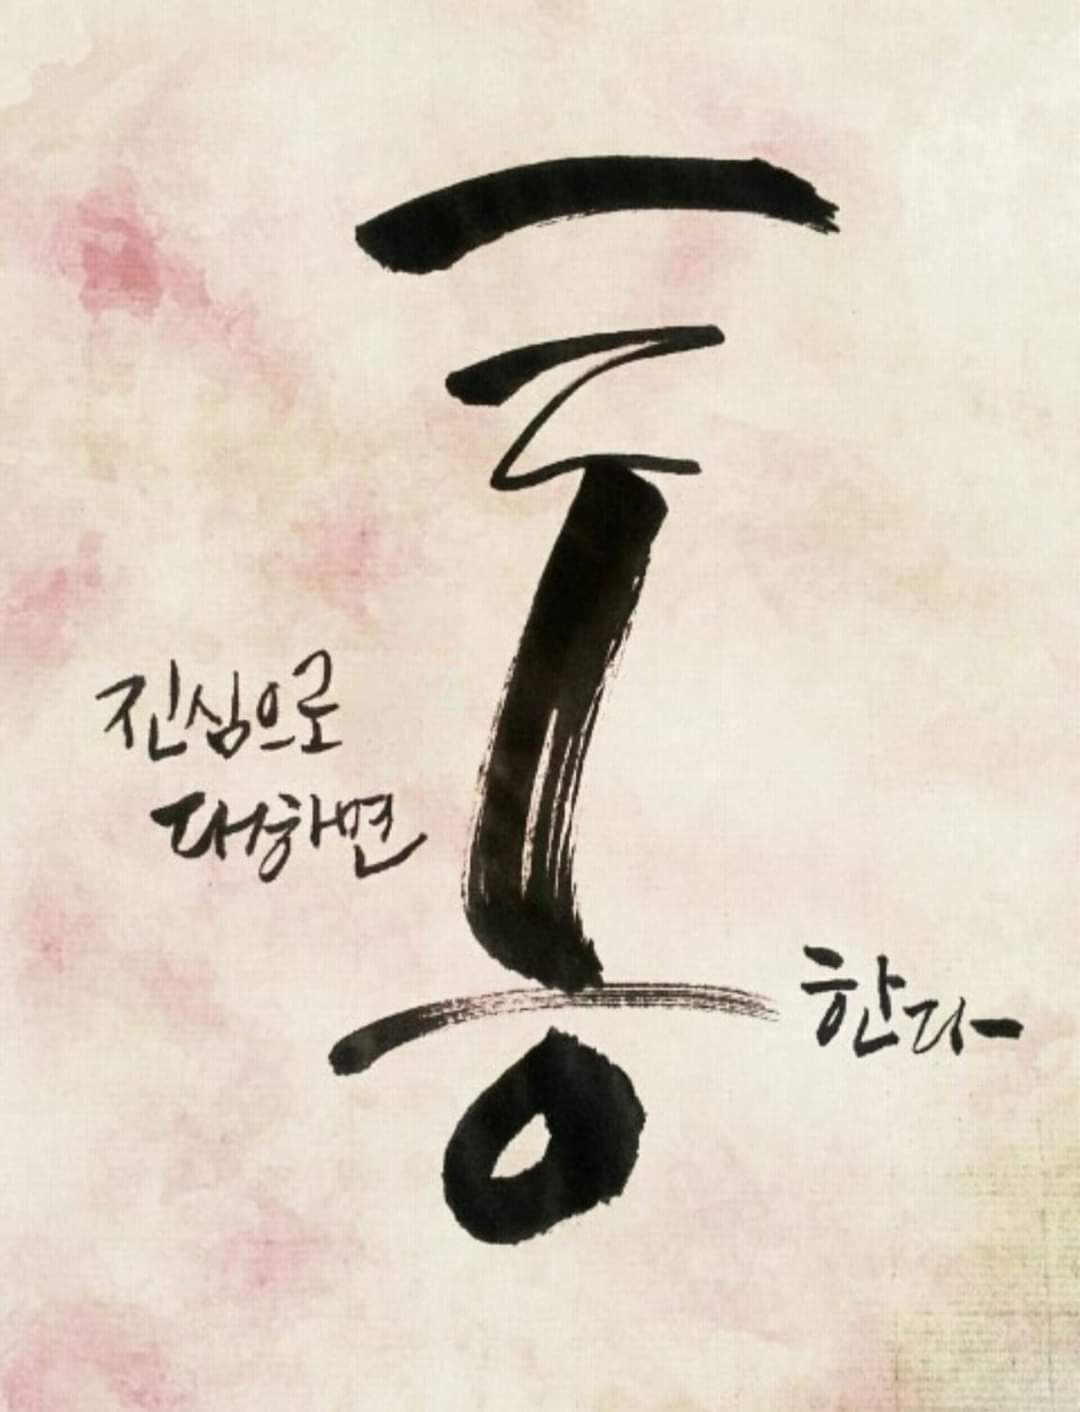 진심으로
대하면
통
한다